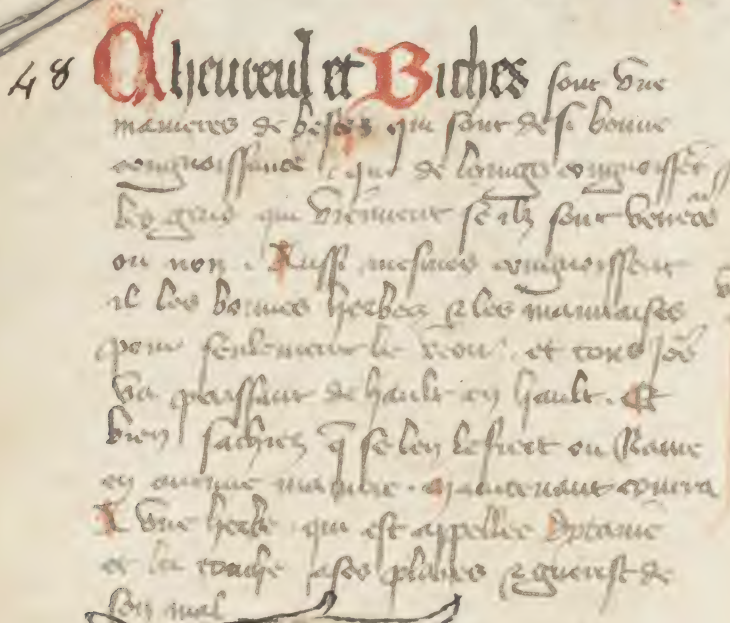 48 Cheureul et Biches sont vne
manieres de bestes qui sont de si bonne
congnoissance que de loings congnoissēt
les gens qui viennent se ilz sont veneōs
ou non . Aussi mesmes congnoissent
il les bonnes herbes & les mauuaises
pour seulement le veoir . et tous Jōs
va paissant de hault en hault . Et
bien sachies q̄ se len le fiert ou Naure
en aucune maniere . maintenant courra
A vne herbe qui est appellee Diptame
et la touche a ses playes & guerist de
son mal